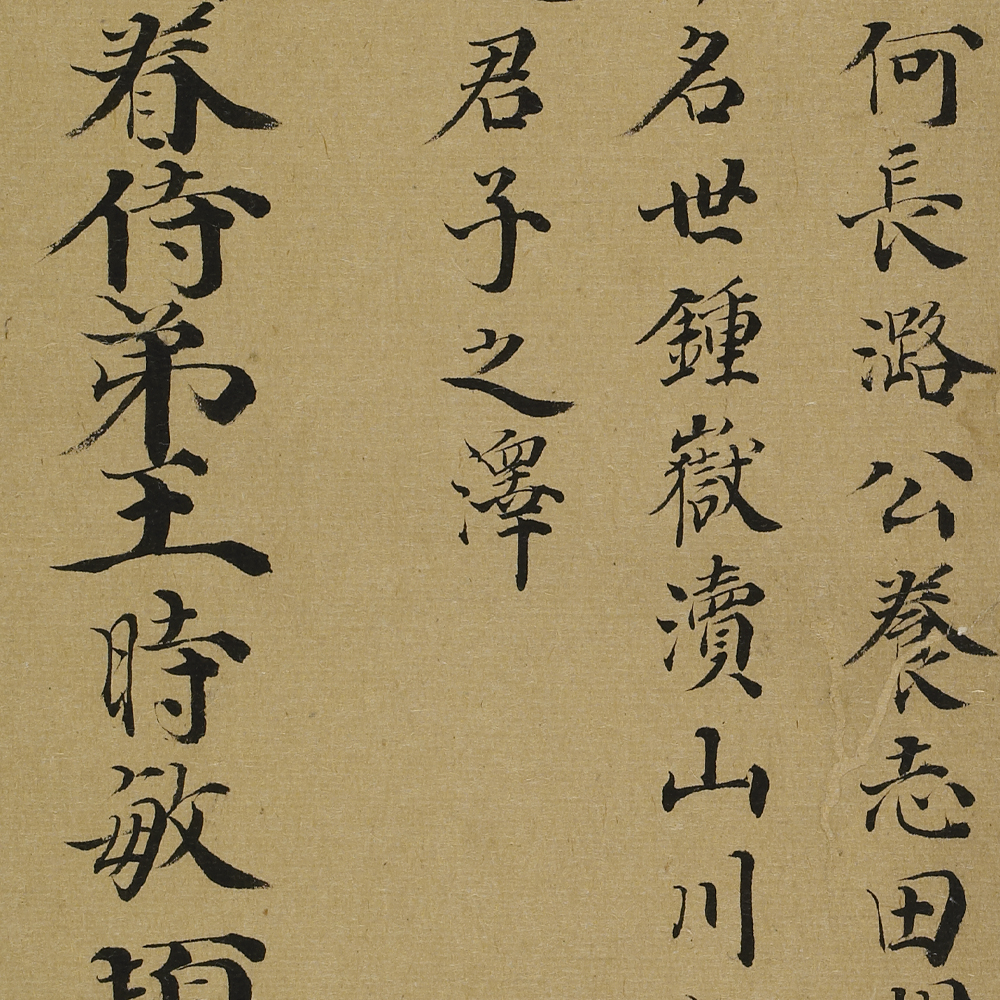 何長潞公養志田
名世鍾嶽瀆山川
君子之澤
眷侍弟王時敏頓